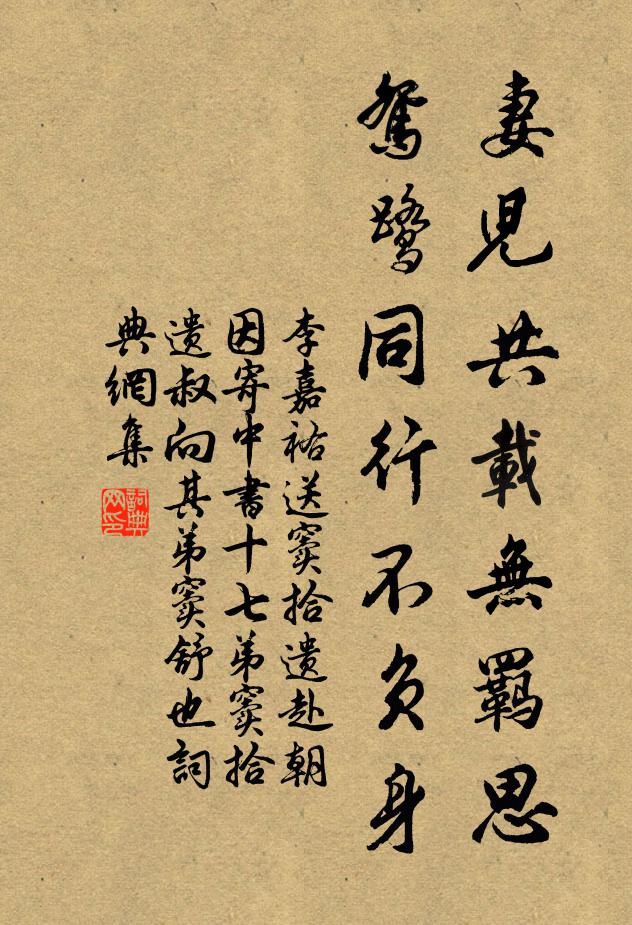 妻児共載無羈思
鴛鷺同行不負身
李嘉祐送竇拾遺赴朝
因寄中書十七弟竇拾
遺叔向其弟竇舒也詞
典網集
詞典
网印